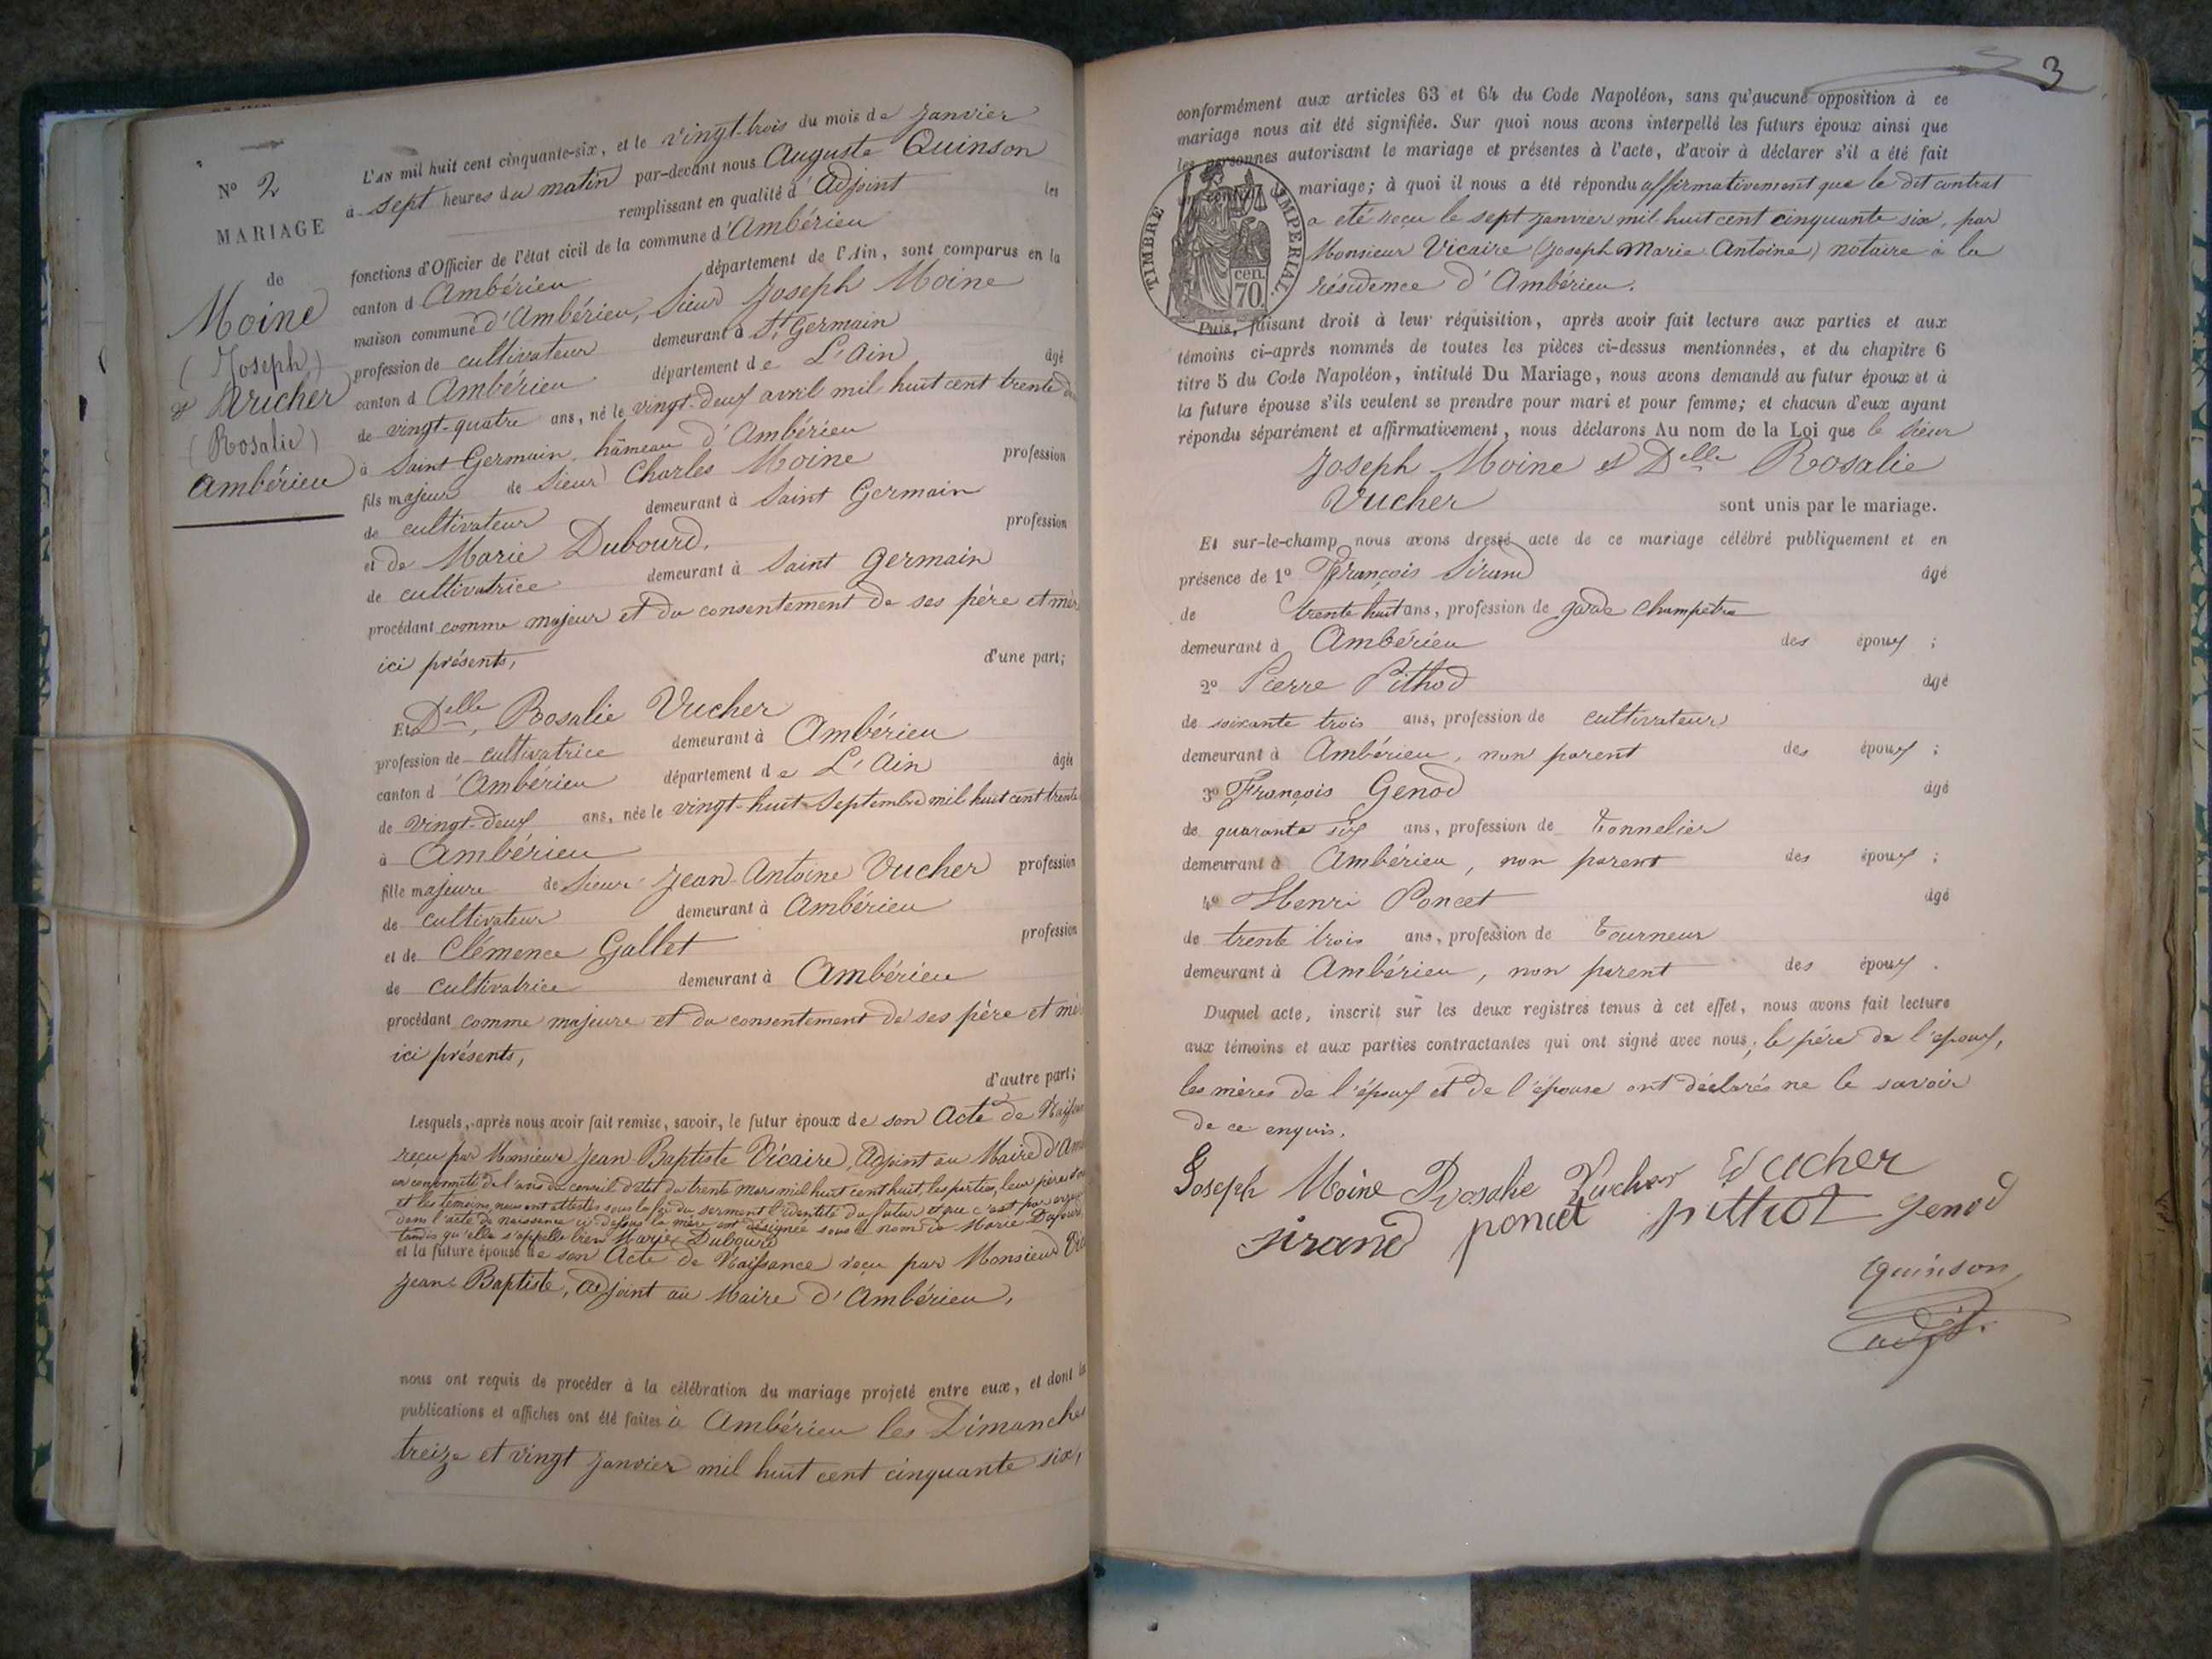 N° 2
MARIAGE
de
Moine
(Joseph)
et Vucher
(Rosalie)
Ambérieu
L'AN mil huit cent cinquante-six, et le vingt-trois du mois de Janvier
à sept heures du matin par-devant nous Auguste Quinson
remplissant en qualité d'adjoint les
fonctions d'Officier de l'état civil de la commune d'Ambérieu
canton d Ambérieu département de l'Ain, sont comparus en la
maison commune d'Ambérieu, Sieur Joseph Moine
profession de cultivateur demeurant à St Germain
canton d Ambérieu département de L'Ain âgé
de vingt-quatre ans, né le vingt-deux avril mil huit cent trente
à Saint Germain, hâmeau d'Ambérieu
fils majeur de Sieur Charles Moine profession
de cultivateur demeurant à Saint Germain
et de Marie Dubourd. profession
de cultivatrice demeurant à Saint Germain
procédant comme majeur et du consentement de ses père et mère
ici présents, d'une part;
Et Delle, Rosalie Vucher
profession de cultivatrice demeurant à Ambérieu
canton d'Ambérieu département de L'Ain âgée
de vingt-deux ans, née le vingt-huit Septembre mil huit cent trente
à Ambérieu
fille majeure de Sieur Jean-Antoine Vucher profession
de cultivateur demeurant à Ambérieu
et de Clémence Gallet profession
de cultivatrice demeurant à Ambérieu
procédant comme majeure et du consentement de ses père et mè
ici présents,
d'autre part;
Lesquels, après nous avoir fait remise, savoir, le futur époux de son Acte de
reçu par Monsieur Jean Baptiste Vicaire, Adjoint au Maire d'Am
en conformité de l'avis du conseil d'état du trente mars mil huit cent huit, les parties, leur père
et les témoins, nous ont attestés sous la foi du serment l'identité du futur et que c'est par
dans l'acte de naissance la mère est désignée sous le nom de Marie
tandis qu'elle s'appelle bien Marie Dubourd
et la future épouse de son Acte de Naissance reçu par Monsieur
Jean-Baptiste, adjoint au Maire d'Ambérieu,
nous ont requis de procéder à la célébration du mariage projeté entre eux, et dont
publications et affiches ont été faites à Ambérieu les Dimanches
treize et vingt janvier mil huit cent cinquante six,
3
conformément aux articles 63 et 64 du Code Napoléon, sans qu'aucune opposition à ce
mariage nous ait été signifiée. Sur quoi nous avons interpellé les futurs époux ainsi que
les personnes autorisant le mariage et présentes à l'acte, d'avoir à déclarer s'il a été fait
un contrat de mariage; à quoi il nous a été répondu affirmativement que le dit contrat
a été reçu le sept janvier mil huit cent cinquante six, par
Monsieur Vicaire (Joseph Marie Antoine) notaire à la
résidence d'Ambérieu.
TIMBRE IMPERIAL
70 cen.
Puis, faisant droit à leur réquisition, après avoir fait lecture aux parties et aux
témoins ci-après nommés de toutes les pièces ci-dessus mentionnées, et du chapitre 6
titre 5 du Code Napoléon, intitulé Du Mariage, nous avons demandé au futur époux et à
la future épouse s'ils veulent se prendre pour mari et pour femme; et chacun d'eux ayant
répondu séparément et affirmativement, nous déclarons Au nom de la Loi que le Sieur
Joseph Moine et Delle Rosalie
Vucher sont unis par le mariage.
Et sur-le-champ nous avons dressé acte de ce mariage célébré publiquement et en
présence de 1° François Sirand âgé
de trente huit ans, profession de garde champêtre
demeurant à Ambérieu des époux ;
2° Pierre Pithod âgé
de soixante trois ans, profession de cultivateur
demeurant à Ambérieu, non parent des époux ;
3° François Genod âgé
de quarante six ans, profession de Tonnelier
demeurant à Ambérieu, non parent des époux ;
4° Henri Poncet âgé
de trente trois ans, profession de Tourneur
demeurant à Ambérieu, non parent des époux .
Duquel acte, inscrit sur les deux registres tenus à cet effet, nous avons fait lecture
aux témoins et aux parties contractantes qui ont signé avec nous; le père de l'époux,
les mères de l'époux et de l'épouse ont déclarés ne le savoir
de ce enquis.
Joseph Moine Rosalie Vucher Vucher
sirand poncet pithod genod
Quinson
adjt.